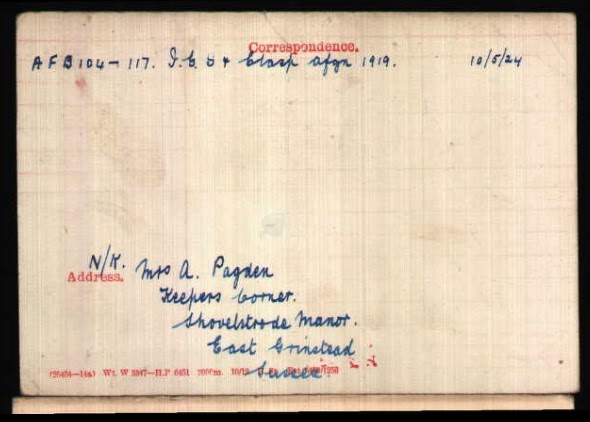 Correspondence.
A F B 104-117. I.G.S & Clasp Afgn 1919. 10/5/24
N/K. Mrs A. Pagden
Address.
Keepers Corner.
Shovelstrode Manor.
East Grinstead
Sussex
(26454-14a) Wt. W 3947-H.P